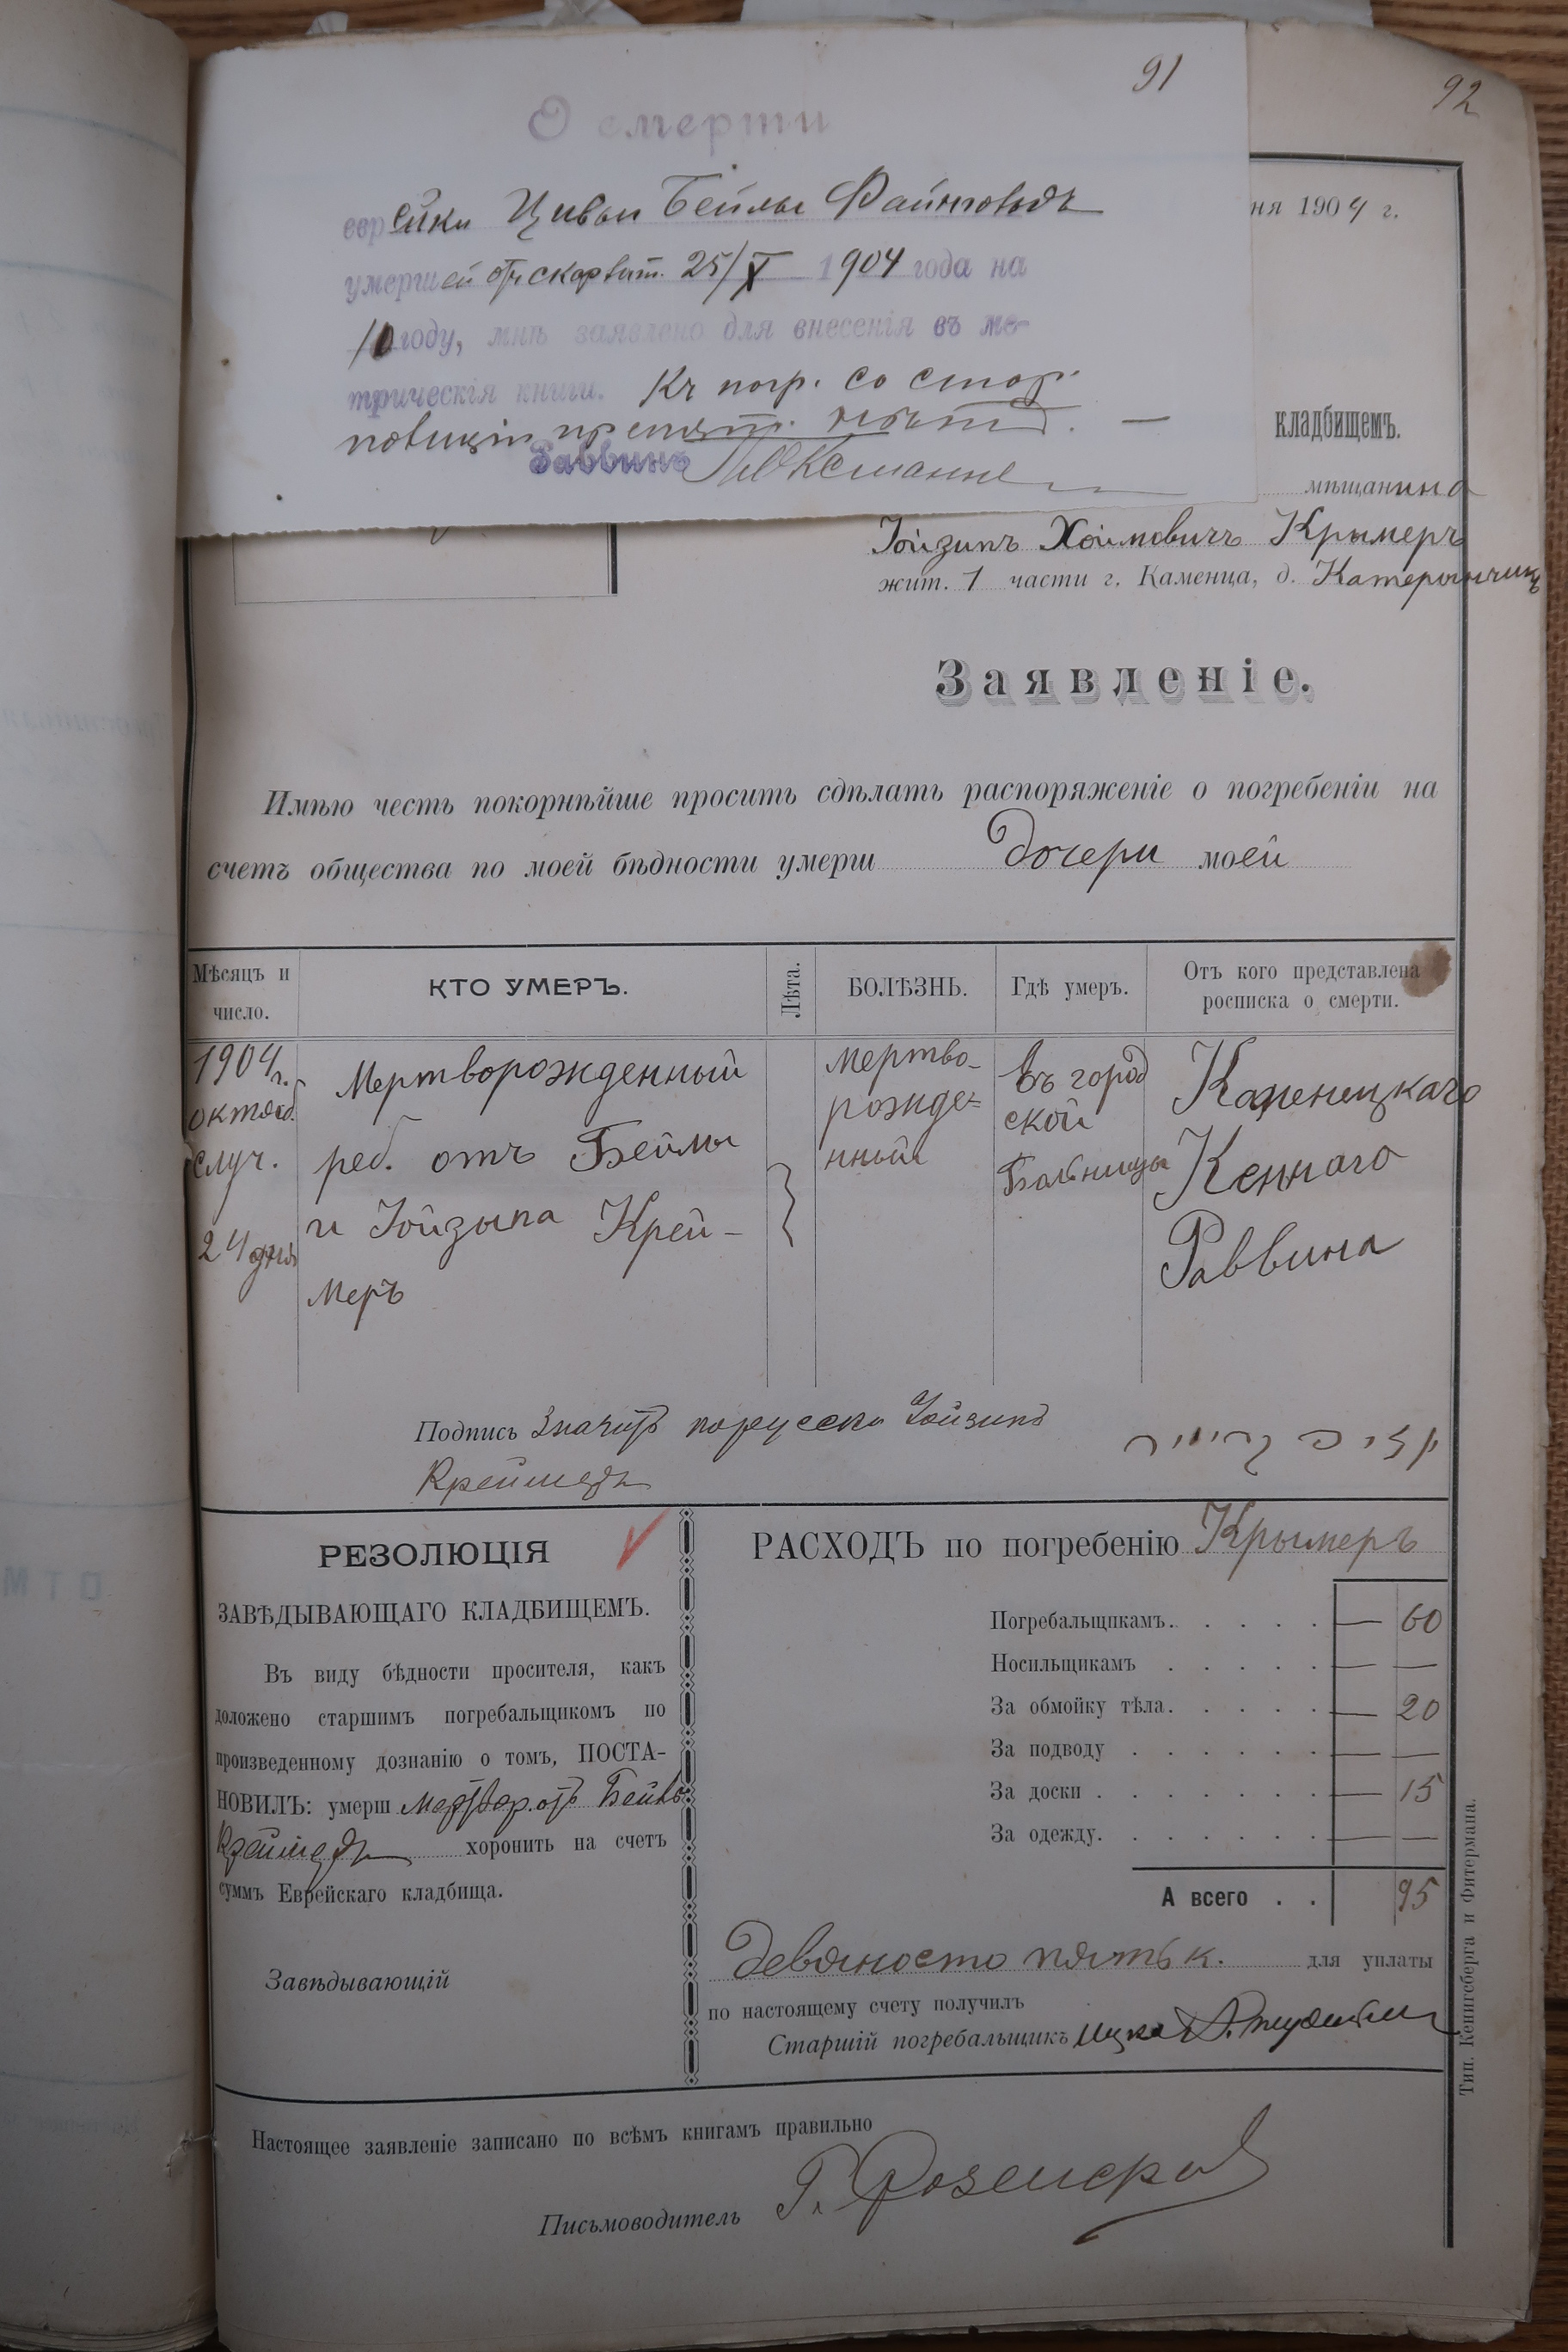 91
О смерти
еврейки Цивьи Бейлы
умершей отъ скарлат. 25/X 1904 года на
10 году, мнѣ заявлено для внесенія въ ме-
трическія книги. Къ погр. со стор.
полиціи препятст. нѣтъ. —
Раввинъ
92
ня 1904 г.
кладбищемъ.
мѣщанина
Іойзипъ Хаимовичъ Крымеръ
жит. 1 части г. Каменца, д.
Заявленіе.
Имѣю честь покорнѣйше просить сдѣлать распоряженіе о погребеніи на
счетъ общества по моей бѣдности умерши дочери моей
Мѣсяцъ и число.
КТО УМЕРЪ.
Лѣта.
БОЛѢЗНЬ.
Гдѣ умеръ.
Отъ кого представлена росписка о смерти.
1904 г.
октяб.
случ.
24 дня
Мертворожденный
реб. отъ Бейлы
и Іойзыпа Крей-
меръ
мертво-
рожде-
нный
въ город
ской
Больницы
Каменецкаго
Кеннаго
Раввина
Подпись значитъ порусски Іойзипъ
Креймеръ
РЕЗОЛЮЦІЯ
ЗАВѢДЫВАЮЩАГО КЛАДБИЩЕМЪ.
Въ виду бѣдности просителя, какъ
доложено старшимъ погребальщикомъ по
произведенному дознанію о томъ, ПОСТА-
НОВИЛЪ: умерш мертвор. отъ Бейлы
Креймеръ хоронить на счетъ
суммъ Еврейскаго кладбища.
Завѣдывающій
РАСХОДЪ по погребенію Крымеръ
Погребальщикамъ. . . . . — 60
Носильщикамъ . . . . . — —
За обмойку тѣла. . . . . — 20
За подводу . . . . . . — —
За доски . . . . . . . — 15
За одежду. . . . . . . — —
А всего . . 95
девяносто пять к. для уплаты
по настоящему счету получилъ
Старшій погребальщикъ Ицко
Настоящее заявленіе записано по всѣмъ книгамъ правильно
Письмоводитель
Тип. Кенигсберга и Фитермана.